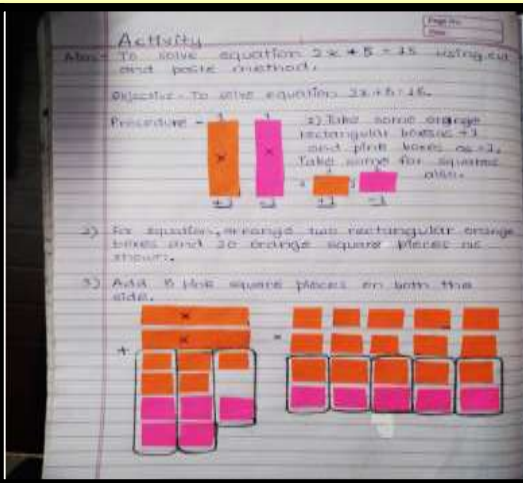 Page No.
Date
Activity
Aim - To solve equation 2x + 5 = 15 using cut
and paste method.
Objective - To solve equation 2x + 5 = 15.
Procedure -
1) Take some orange
rectangular boxes as +1
and pink boxes as -1.
Take same for squares
also.
x x
+1 -1
+1 -1
2) For equation, arrange two rectangular orange
boxes and 20 orange square pieces as
shown.
3) Add 5 pink square pieces on both the
side.
x
x
+ =